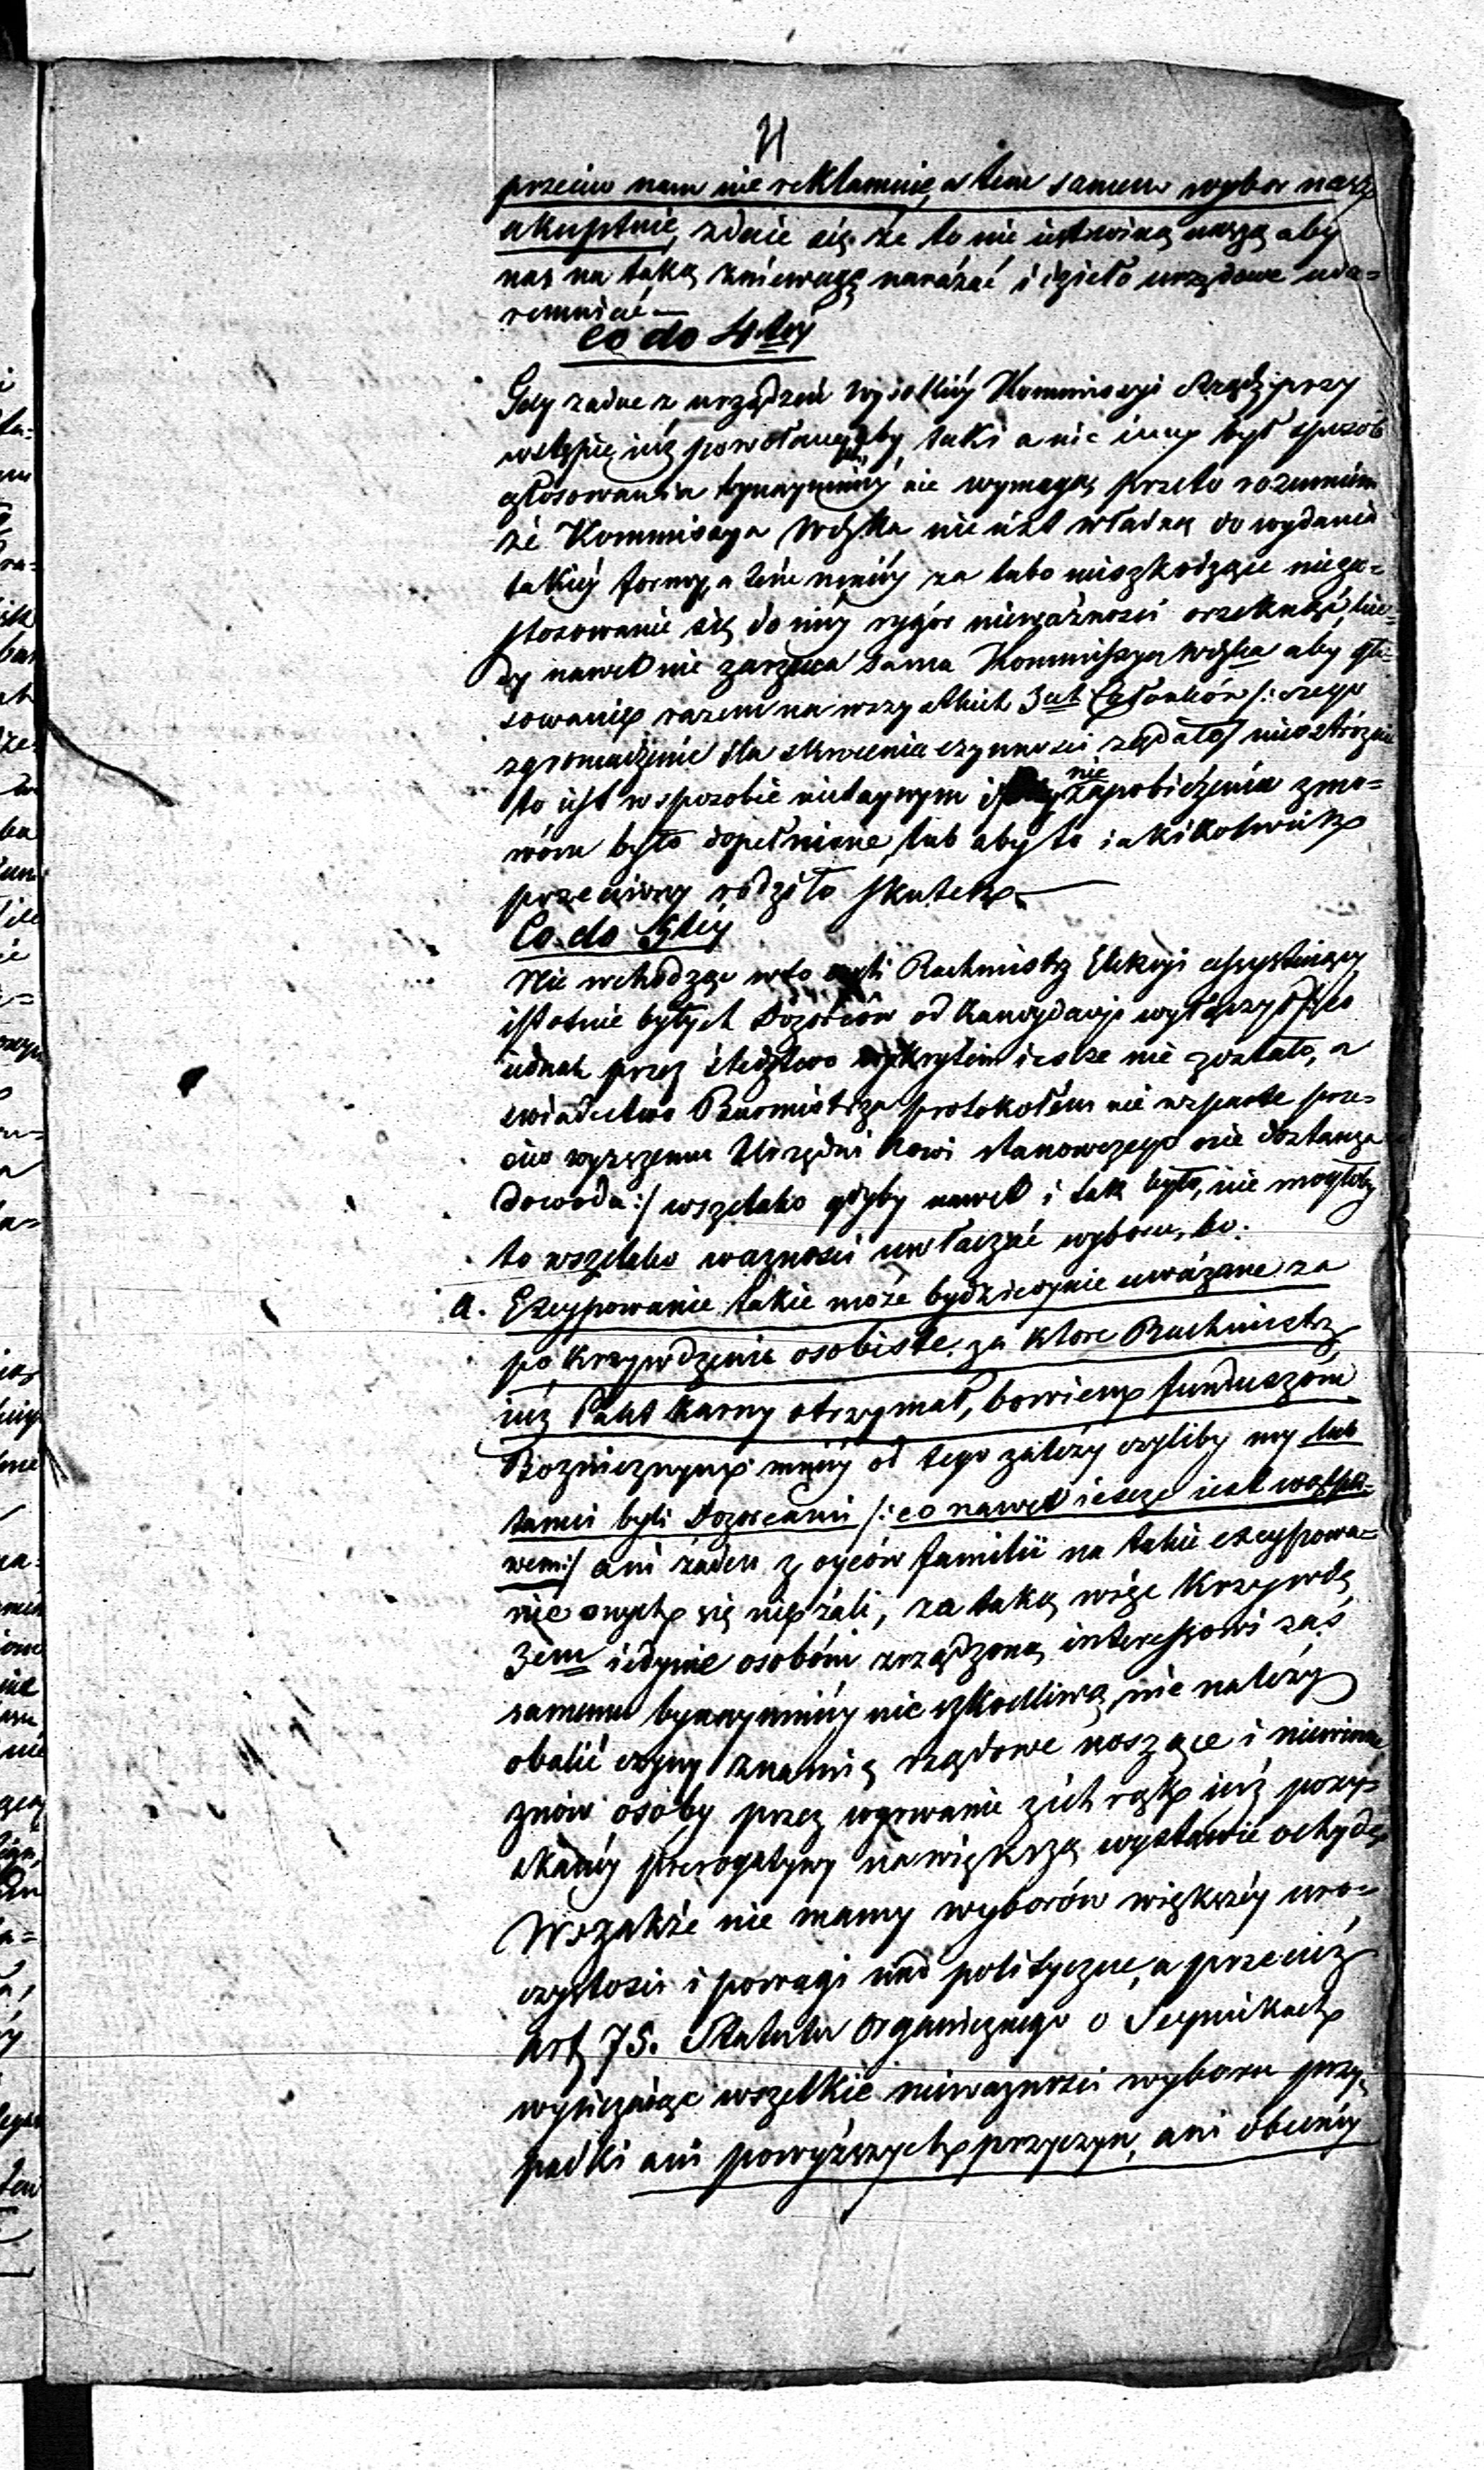 przeciw nam nie reklamuie, a tem samem wybor nasz
akceptuie, zdaie się że to nie iest winą naszą aby
nas na taką zniewagę narażać i dzieło urzędowe uda=
remniać —
Co do 4tey
Gdy żadne z urządzeń Wysokiéy Kommissyi Rządz: przy
wstępie iuż powołanych aby taki a nie inny był sposób
głosowania bynaymniéy nie wymaga, przeto rozumiem
że Kommissya Wdzka nie iest władną do wydania
takiéy formy, a tém mniéy za lubo nieszkodzące nieza=
stosowanie się do niéy rygór nieważności orzeknąć,
nawet nie zarzuca sama Kommissya Wdzka aby gło=
sowanie razem na wszystkich 3ch Członków /: czego
zgromadzenie dla skrócenia czynności żądało/ nieostróżnie
to iest w sposobie nietaynym i nie zapobieżenia zmo=
wóm było dopełnione, lub aby to iakikolwiek
przeciwny rodziło skutek —
Co do 5tey
Nie wchodząc w to czyli Rachmistrz Elekcyi assystuiący
istotnie byłych Dozorców od kandydacyi wyłączył /: co
iednak przez śledztwo wykrytem ieszcze nie zostało, a
świadectwo Burmistrza protokołem nie wsparte prze=
ciw wyższemu Urzędnikowi stanowczego nie dostarcza
dowodu :/ wszelako gdyby nawet i tak było, nie mogłoby
to wszelako ważności uwłaczać wyboru, bo.
a. Excypowanie takie może bydź iedynie uważane za
pokrzywdzenie osobiste, za ktore Rachmistrz
iuż Pakt karny otrzymał, bowiem funduszóm
Boznicznym mniéy od tego zależy czyliby my lub
tamci byli Dozorcami /: co nawet ieszcze iest wątpli=
wem :/ ani żaden z oyców familii na takie excypowa=
nie onych się nie żali, za taką więc krzywdę
3em iedynie osobóm zrządzoną interessowi zaś
samemu bynaymniéy nie szkodliwą, nie należy
obalić czyny znamię rządowe noszące i niewinne
znów osoby przez wyrwanie z ich rąk iuż pozy=
skanéy prerogatywy na większą wystawić ohydę
Wszakże nie mamy wyborów większéy uro=
czystości i powagi nad polityczne, a przecież
art 75. Statutu organicznego o Seymikach
wyliczaiąc wszelkie nieważności wyboru przy=
padki ani powyższych przyczyn, ani obecnéy